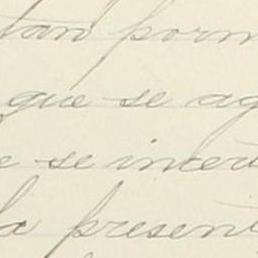 tan porm
que se ag
e se incert
la present